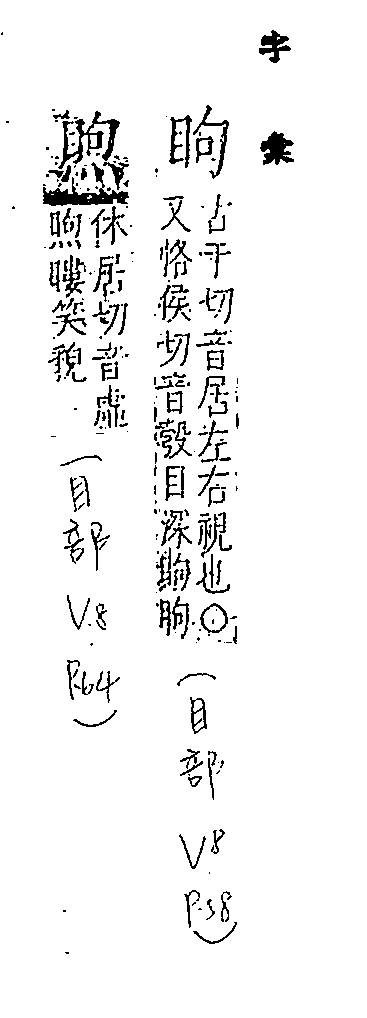 字彙
眗
古于切音居左右視也〇
又恪侯切音目深眗
(目部
V8
P.58)
休居切音虛
瞜笑貌
(目部
V.8
P.64)